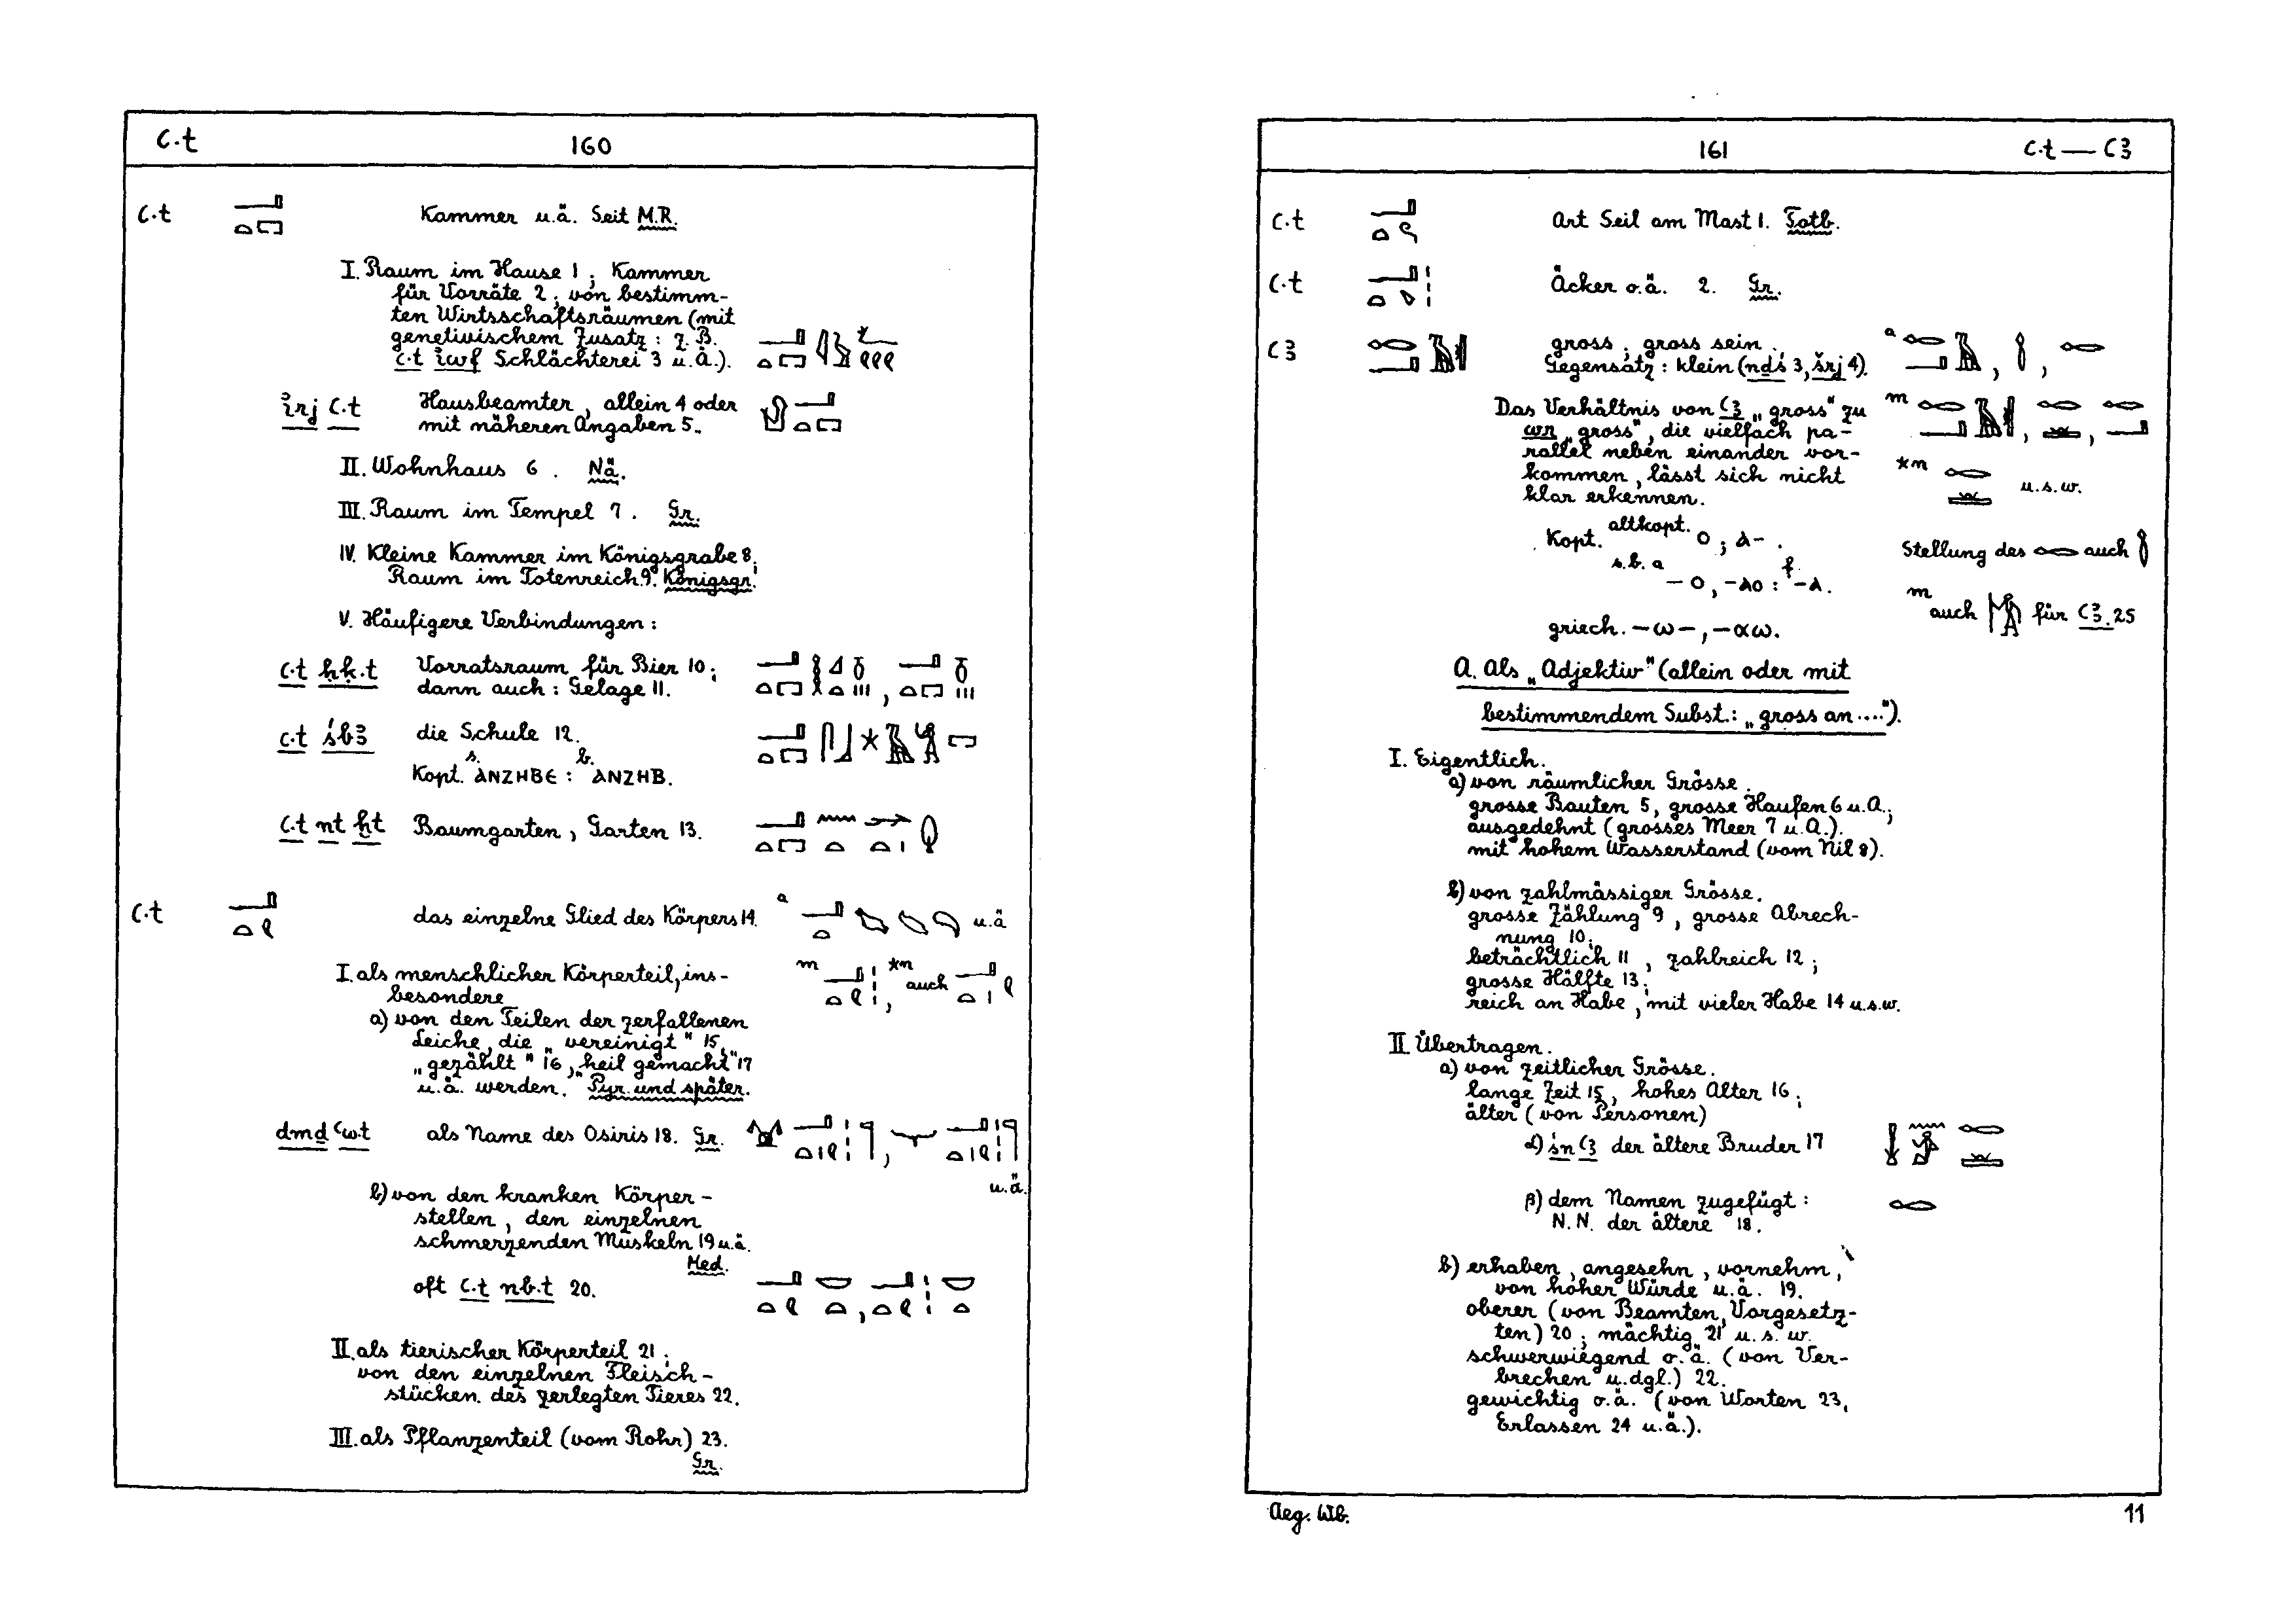 ꜥ.t 160
ꜥ.t Kammer u.ä. Seit M.R.
I. Raum im Hause 1; Kammer
für Vorräte 2; von bestimm-
ten Wirtsschaftsräumen (mit
genetivischem Zusatz: z.B.
ꜥ.t iwf Schlächterei 3 u.Ä.).
irj ꜥ.t Hausbeamter, allein 4 oder
mit näheren Angaben 5.
II. Wohnhaus 6. Nä.
III. Raum im Tempel 7. Gr.
IV. Kleine Kammer im Königsgrabe 8;
Raum im Totenreich 9. Königsgr.
V. Häufigere Verbindungen:
ꜥ.t ḥḳ.t Vorratsraum für Bier 10;
dann auch: Gelage 11.
ꜥ.t śbꜣ die Schule 12.
s. b.
Kopt. ⲁⲛⲍⲏⲃⲉ: ⲁⲛⲍⲏⲃ.
ꜥ.t nt ḫt Baumgarten, Garten 13.
ꜥ.t das einzelne Glied des Körpers 14. a u.ä
I. als menschlicher Körperteil, ins- m *m auch
besondere
a) von den Teilen der zerfallenen
Leiche, die „vereinigt" 15,
„gezählt" 16, „heil gemacht" 17
u.ä. werden. Pyr. und später.
dmḏ ꜥw.t als Name des Osiris 18. Gr.
u.ä.
b) von den kranken Körper-
stellen, den einzelnen
schmerzenden Muskeln 19 u.ä.
Med.
oft ꜥ.t nb.t 20.
II. als tierischer Körperteil 21;
von den einzelnen Fleisch-
stücken des zerlegten Tieres 22.
III. als Pflanzenteil (vom Rohr) 23.
Gr.
161 ꜥ.t — ꜥꜣ
ꜥ.t Art Seil am Mast 1. Totb.
ꜥ.t Äcker o.ä. 2. Gr.
ꜥꜣ gross; gross sein; a
Gegensatz: klein (nḏś 3, šrj 4).
Das Verhältnis von ꜥꜣ „gross" zu m
wr „gross", die vielfach pa-
rallel neben einander vor- *m
kommen, lässt sich nicht u.s.w.
klar erkennen.
altkopt.
Kopt. ⲟ; ⲁ-.
s.b. a f.
-ⲟ, -ⲁⲟ: -ⲁ.
Stellung des auch
m
auch für ꜥꜣ. 25
griech. -ω-, -αω.
A. Als „Adjektiv" (allein oder mit
bestimmendem Subst.: „gross an ....").
I. Eigentlich.
a) von räumlicher Grösse.
grosse Bauten 5, grosse Haufen 6 u.A.;
ausgedehnt (grosses Meer 7 u.A.).
mit hohem Wasserstand (vom Nil 8).
b) von zahlmässiger Grösse.
grosse Zählung 9, grosse Abrech-
nung 10;
beträchtlich 11, zahlreich 12;
grosse Hälfte 13;
reich an Habe, mit vieler Habe 14 u.s.w.
II. Übertragen.
a) von zeitlicher Grösse.
lange Zeit 15, hohes Alter 16;
älter (von Personen)
α) śn ꜥꜣ der ältere Bruder 17
β) dem Namen zugefügt:
N.N. der ältere 18.
b) erhaben, angesehn, vornehm,
von hoher Würde u.ä. 19.
oberer (von Beamten, Vorgesetz-
ten) 20; mächtig 21 u.s.w.
schwerwiegend o.ä. (von Ver-
brechen u.dgl.) 22.
gewichtig o.ä. (von Worten 23,
Erlassen 24 u.ä.).
Aeg. Wb. 11